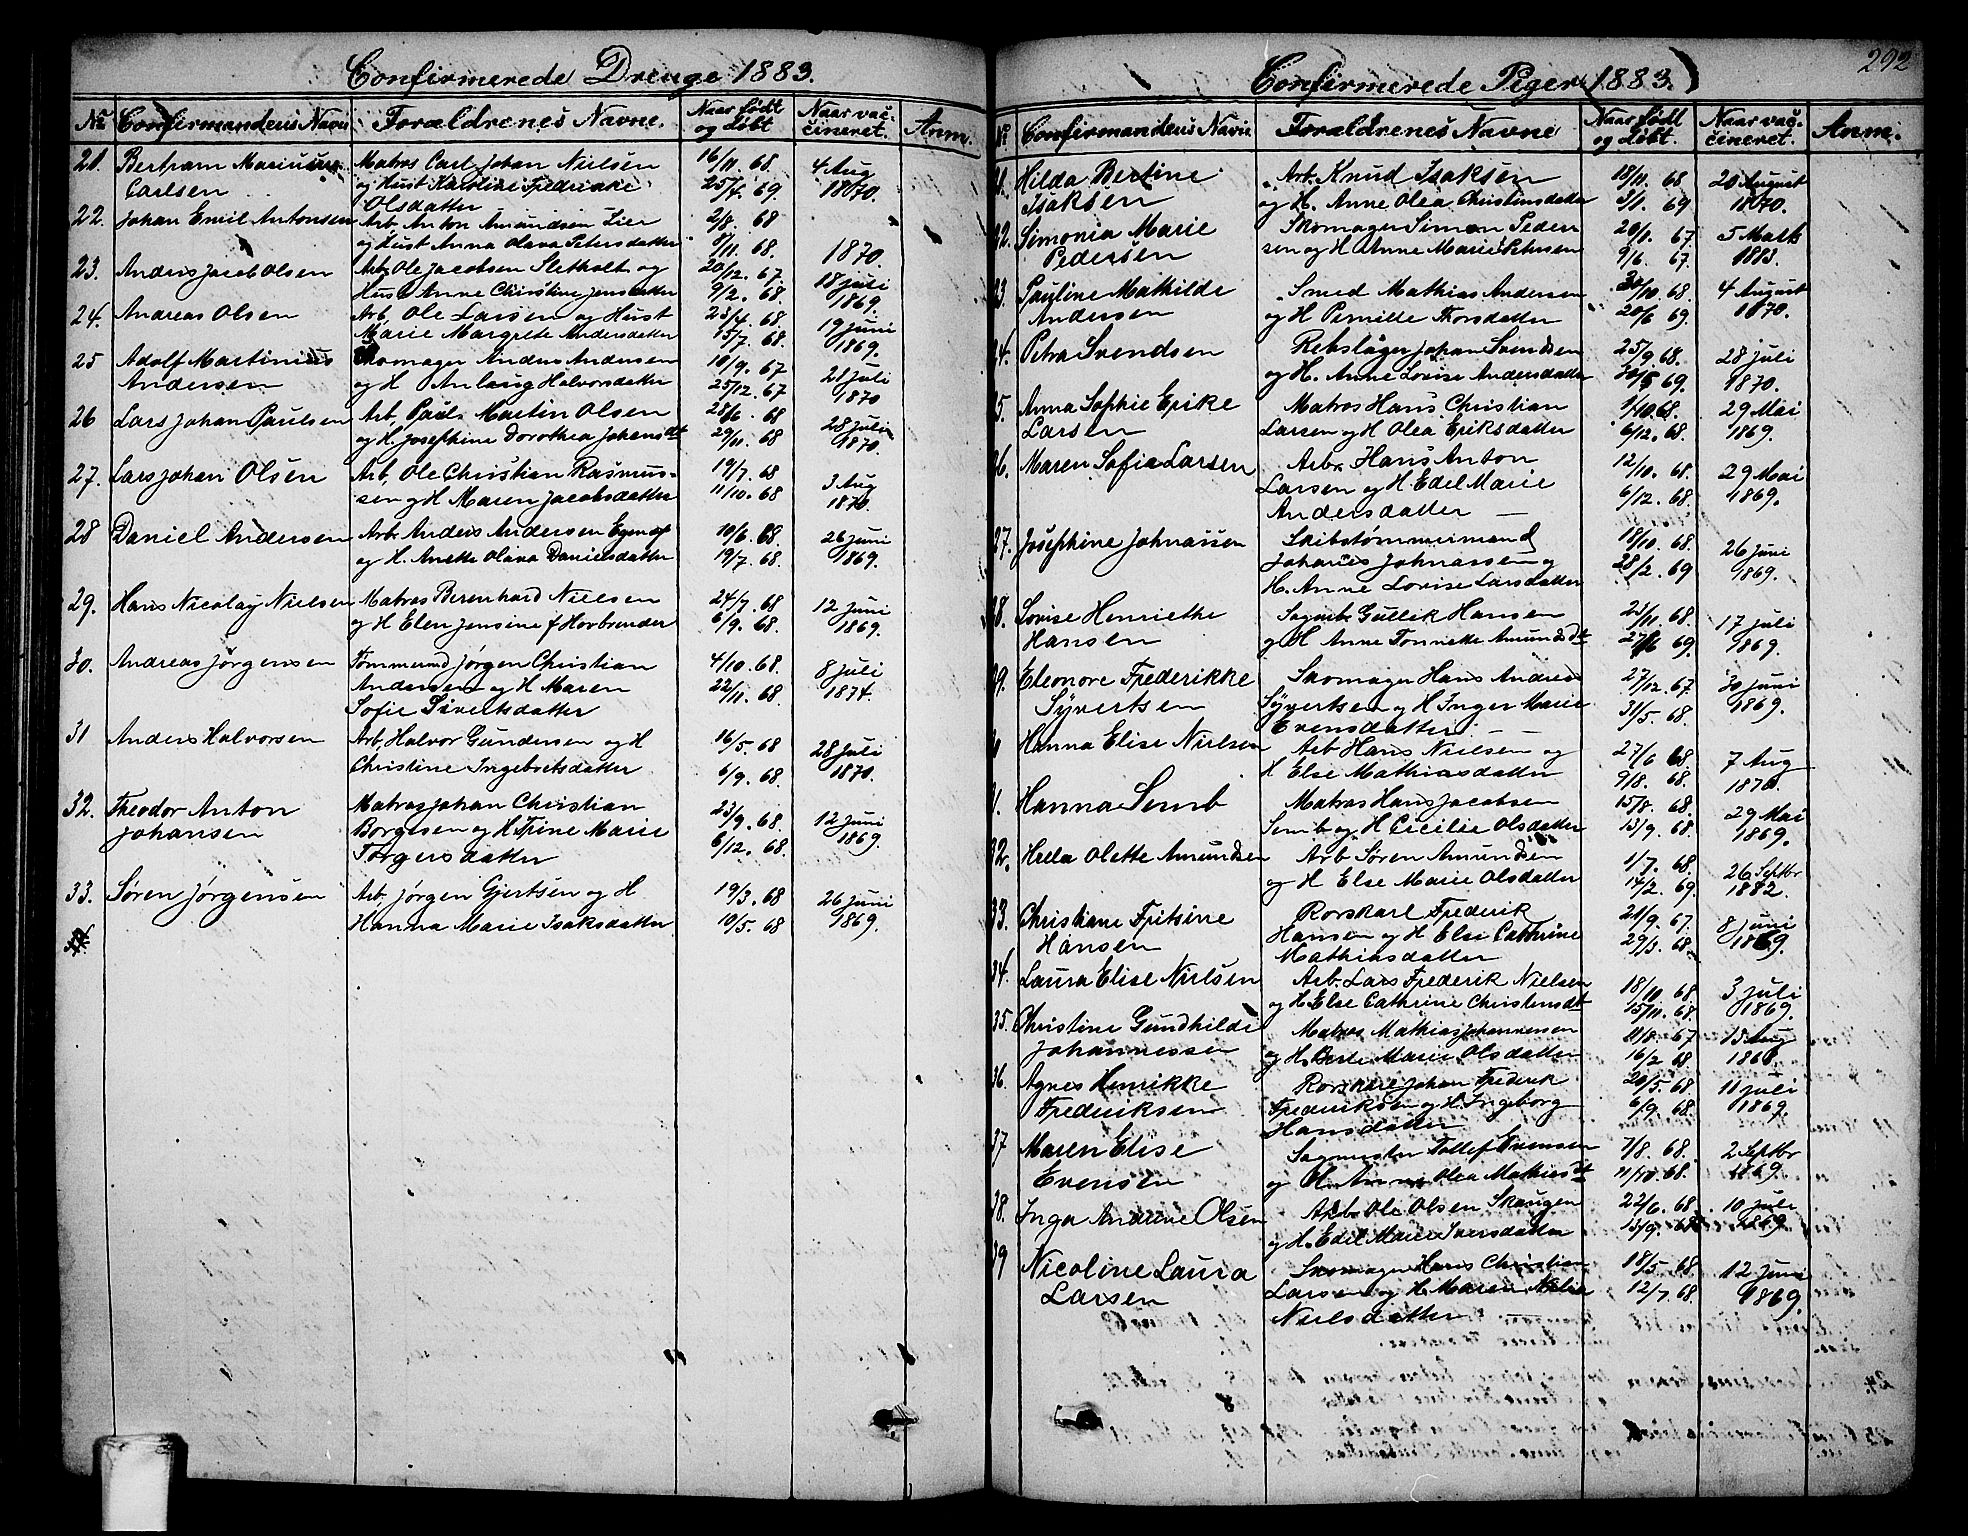 Confirmerede Drenge 1883.
No Confirmandens Navn Forældrenes Navne. Naar født og døbt Naar vaccineret. Anm.
21. Bertram Marinius Matros Carl Johan Nielsen 16/11 68. 4 Aug
Carlsen og Hust Karoline Fredrikke 25/4 69. 1870.
Olsdatter
22. Johan Emil Antonsen Arb. Anton Amundsen Lier 2/8 68
og Hust Anna Olava Petersdatter 8/11. 68. 1870.
23. Anders Jacob Olsen Arb. Ole Jacobsen Sletholt og 20/12. 67 18 juli
Hust Anne Christine Jensdatter 9/2. 68. 1869.
24. Andreas Olsen Arb. Ole Larsen og Hust 23/4. 68. 19 juni
Marie Margrete Andersdatter 15/7 68. 1869.
25 Adolf Martinius Skomager Anders Andersen 10/9. 67 21 juli
Andersen og H Anlaug Halvorsdatter 25/12. 67 1870
26 Lars Johan Paulsen Arb. Paul Martin Olsen 28/6. 68 28 juli
og H. Josephine Dorothea Johansdt 29/11. 68 1870.
27. Lars Johan Olsen Arb. Ole Christian Rasmus- 19/7. 68 3 Aug
sen og H Maren Jacobsdatter 11/10. 68 1870.
28 Daniel Andersen Arb. Anders Andersen 10/6. 68. 26 juni
og H. Anette Olava Danielsdatter 19/7. 68. 1869.
29. Hans Nicolay Nielsen Matros Berenhard Nielsen 24/7. 68 12 juni
og H Elen Jensine f Hovbrender 6/9. 68. 1869.
30. Andreas Jørgensen Tømmermd Jørgen Christian 4/10. 68. 8 juli
Andersen og H Maren 22/11. 68. 1874.
Sofie Sivertsdatter
31 Anders Halvorsen Arb. Halvor Gundersen og H 16/5. 68 28 juli
Christine Ingebretsdatter 6/9. 68. 1870.
32. Theodor Anton Matros Johan Christian 23/9. 68. 12 juni
Johansen Borgesen og H Trine Marie 6/12. 68. 1869.
Torgersdatter
33. Søren Jørgensen Arb. Jørgen Gjertsen og H 19/3. 68 26 juni
Hanna Marie Isaksdatter 10/5. 68 1869.
34
292
Confirmerede Piger 1883.
No Confirmandens Navn Forældrenes Navne Naar født og døbt. Naar vaccineret. Anm.
Hilda Bertine Arb. Knud Isaksen 18/11. 68 20 August
Isaksen og H. Anne Olea Christensdatter 3/1. 69 1870.
22. Simonia Marie Skomager Simon Peder 20/1. 67 5 Marts
Pedersen sen og H Anne Marie Petersen 9/6 67. 1883.
23. Pauline Mathilde Smed Mathias Andersen 30/10. 68. 4 August
Andersen og H Pernille Thorsdatter 20/6 69. 1870.
24. Petra Svendsen Rebslager Johan Svendsen 25/9 68. 28 juli
og H. Anne Lovise Andersdatter 30/5 69. 1870.
25. Anna Sophie Erike Matros Hans Christian 1/10. 68. 29 Mai
Larsen Larsen og H Olea Eriksdatter 6/12. 68. 1869.
26. Maren Sofia Larsen Arb. Hans Anton 12/10. 68. 29 Mai
Larsen og H. Edel Marie 6/12. 68. 1869.
Andersdatter
27. Josephine Johnassen Skibstømmermand 18/10. 68. 26 juni
Johanes Johnassen og 28/2. 69 1869.
H. Anne Lovise Larsdatter
28. Lovise Henriette Sagarb. Gullik Hansen 23/11. 68. 17 juli
Hansen og H Anne Tonnette Amundsdt 27/6 69. 1869.
29. Eleonore Frederikke Skomager Hans Andreas 27/12. 67. 30 juni
Syvertsen Syvertsen og H Inger Marie 31/5. 68. 1869.
Evensdatter
Hanna Elise Nielsen Arb Hans Nielsen og 27/6 68. 7 Aug
H Else Mathiasdatter 9/8. 68. 1870.
Hanna Semb Matros Hans Jacobsen 15/8. 68. 29 Mai
Semb og H Cicilie Olsdatter 13/9. 68. 1869.
32. Helda Olette Amundsen Arb Søren Amundsen 1/7. 68. 26 Septbr
og H Else Marie Olsdatter 14/2. 69. 1882.
33. Christiane Fritsine Rorskarl Frederik 21/9. 67. 8 juni
Hansen Hansen og H Else Cathrine 29/3. 68. 1869.
Mathiasdatter
34. Laura Elise Nielsen Arb. Lars Frederik Nielsen 18/10 68. 3 juli
og H. Else Cathrine Christensdt 15/11. 68. 1869.
35. Christine Gundhilde Matros Mathias Johannesen 11/8. 67 15 Aug
Johannessen og H. Berte Marie Olsdatter 16/2 68 1868.
36. Agnes Henrikke Rorskarl Johan Frederik 20/5. 68. 11 juli
Frederiksen Frederiksen og H. Ingeborg 6/9. 68. 1869.
Hansdatter
37 Maren Elise Sagmester Tollef Evensen 7/8. 68. 2 Septbr
Evensen og H. Anne Olea Mathiesdt 11/10. 68. 1869.
38. Inga Andrine Olsen Arb Ole Olsen Skaugen 22/6. 68. 10 juli
og H. Edel Marie Iversdatter 13/9. 68 1869.
39 Nicoline Laura Skomager Hans Christian 18/5. 68. 12 juni
Larsen Larsen og H. Maren 12/7. 68. 1869.
Nielsdatter